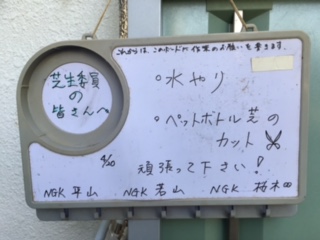 これからは、このボードに作業のお願いを書きます。
芝生委員
の
皆さんへ
○水やり
○ペットボトル芝の
カット
4/20
頑張って下さい!
NGK 平山 NGK 若山 NGK 柘木田